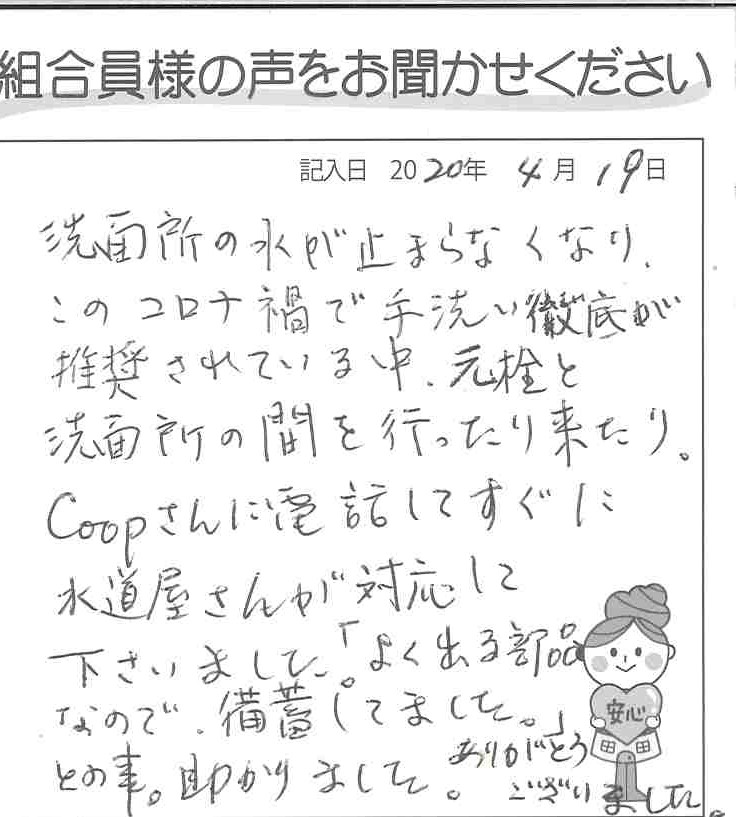 組合員様の声をお聞かせください
記入日 2020年 4月 19日
洗面所の水が止まらなくなり、
このコロナ禍で手洗い徹底が
推奨されている中、元栓と
洗面所の間を行ったり来たり。
Coopさんに電話してすぐに
水道屋さんが対応して
下さいました。「よく出る部品
なので、備蓄してました。」
との事。助かりました。ありがとう
ございました。
安心